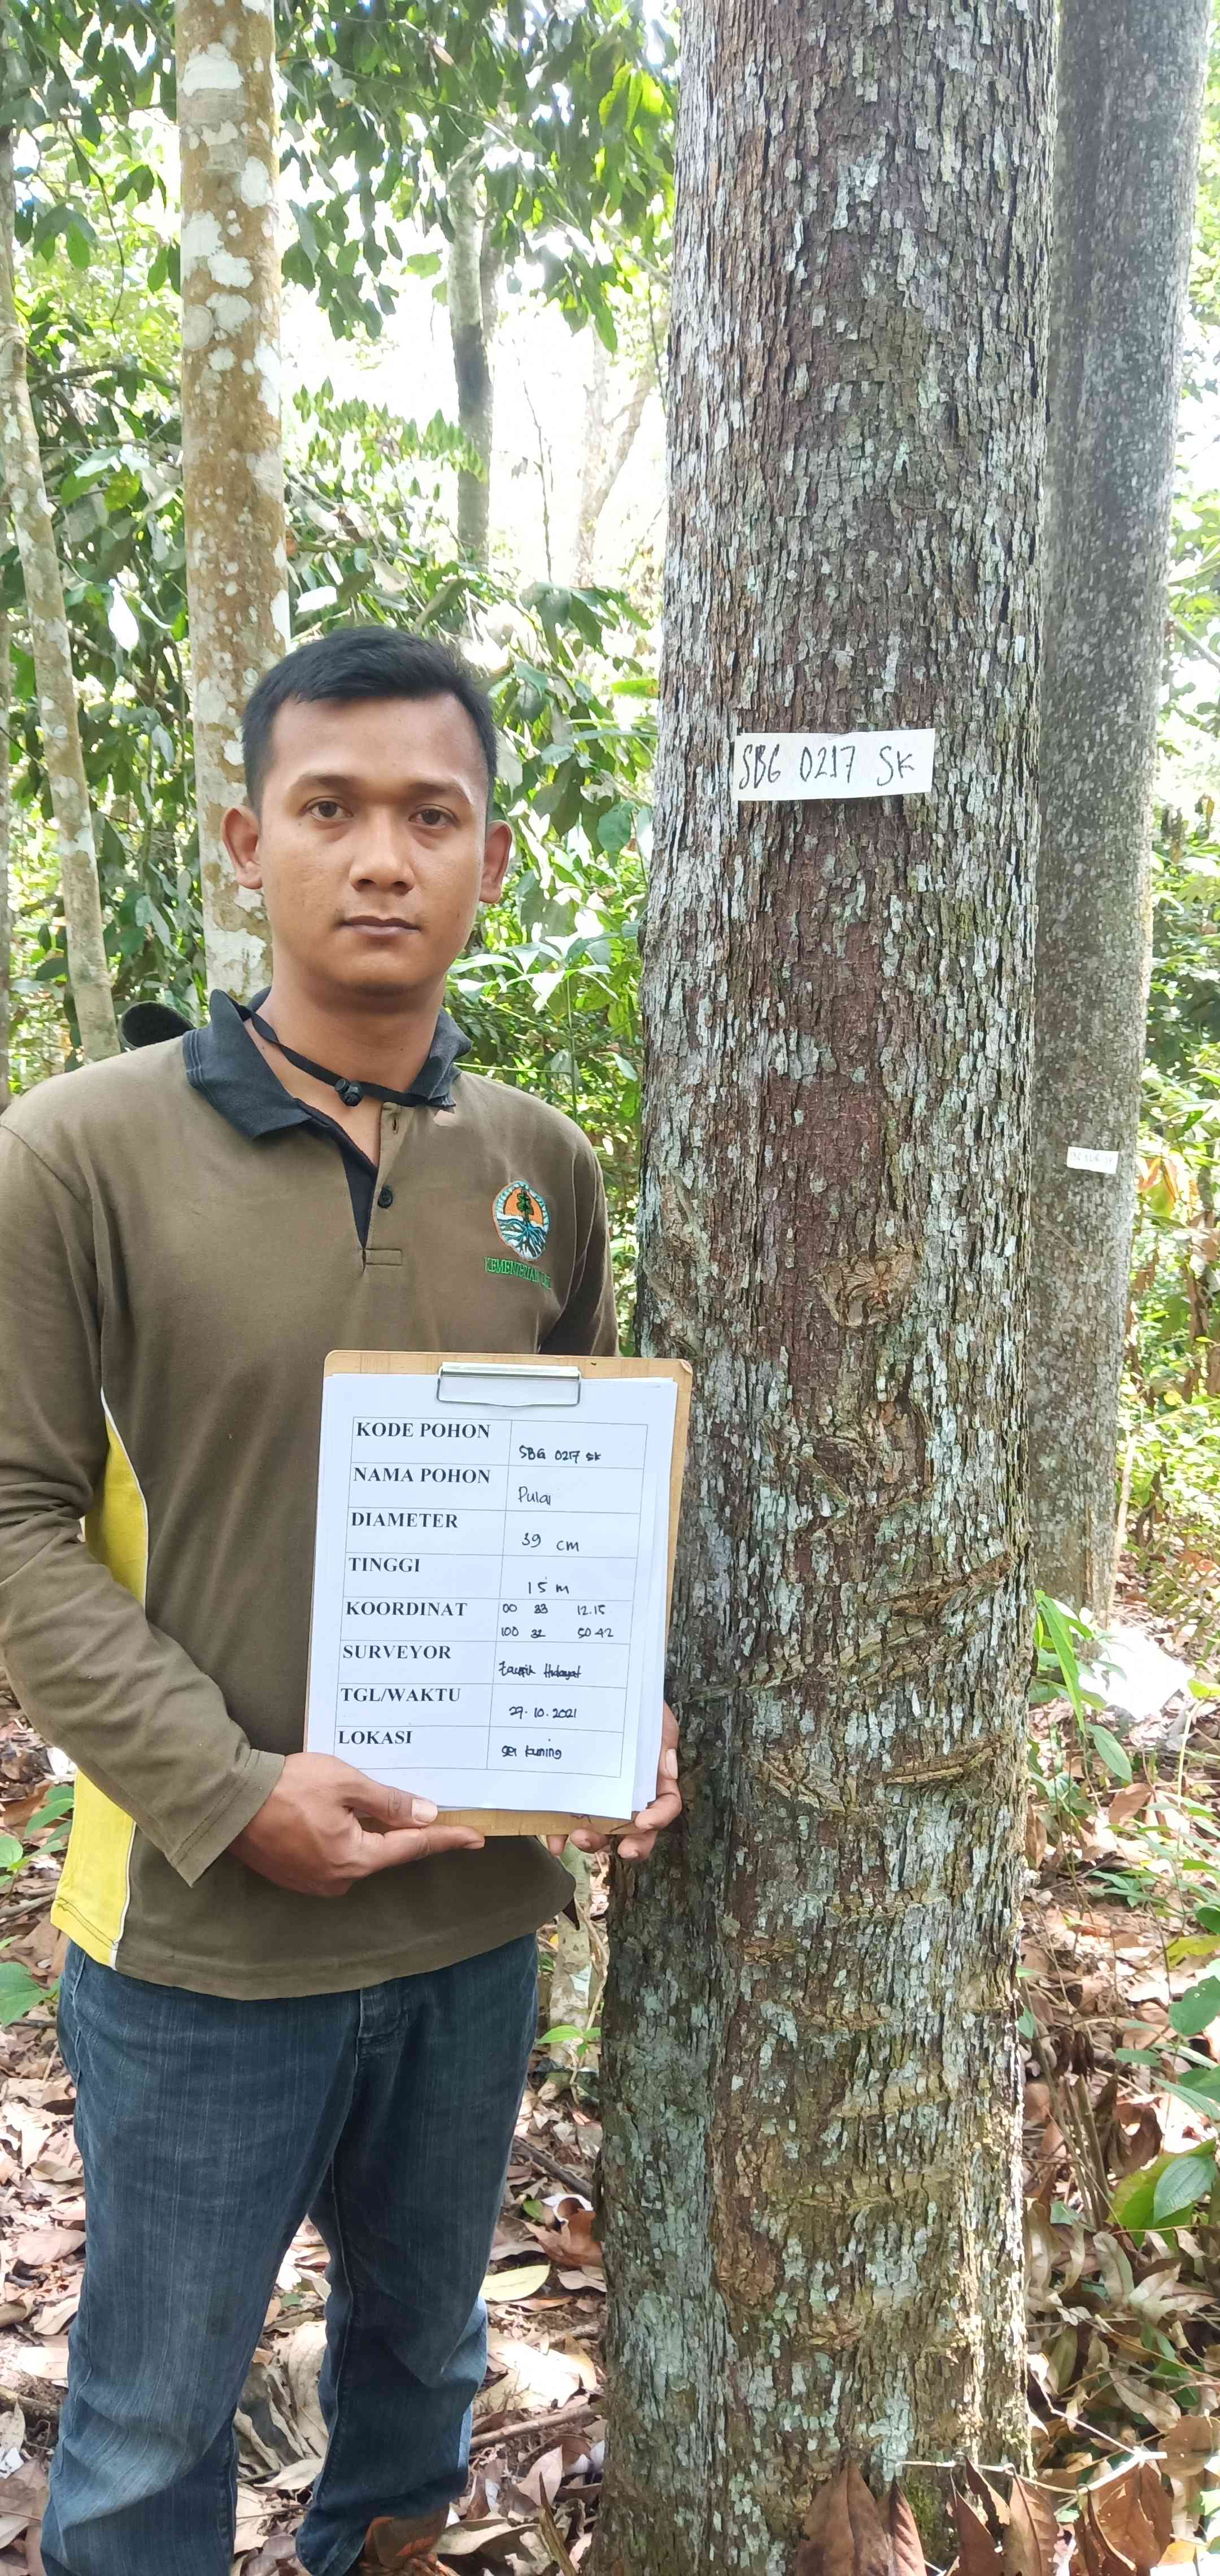 SBG 0217 SK
KEMENTERIAN
KODE POHON SBG 0217 SK
NAMA POHON Pulai
DIAMETER 39 cm
TINGGI 15 m
KOORDINAT 00 33 12.15
100 32 50.42
SURVEYOR Taufik Hidayat
TGL/WAKTU 29.10.2021
LOKASI Sei kuning